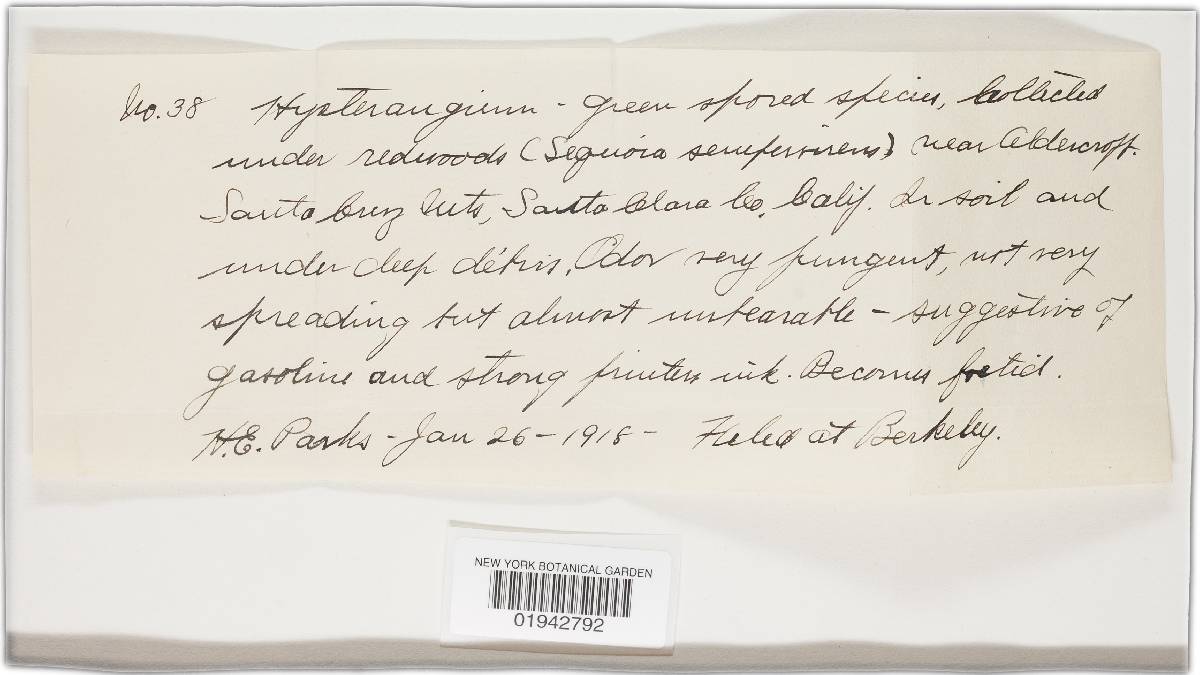 No. 38 Hysterangium - Green spored species, Collected
under redwoods (Sequoia sempervirens) near Aldercroft.
Santa Cruz Mts, Santa Clara Co, Calif. In soil and
under deep débris, Odor very pungent, not very
spreading but almost unbearable - suggestive of
gasoline and strong printers ink. Becomes foetid.
H.E. Parks - Jan 26 - 1918 - Filed at Berkeley.
NEW YORK BOTANICAL GARDEN
01942792